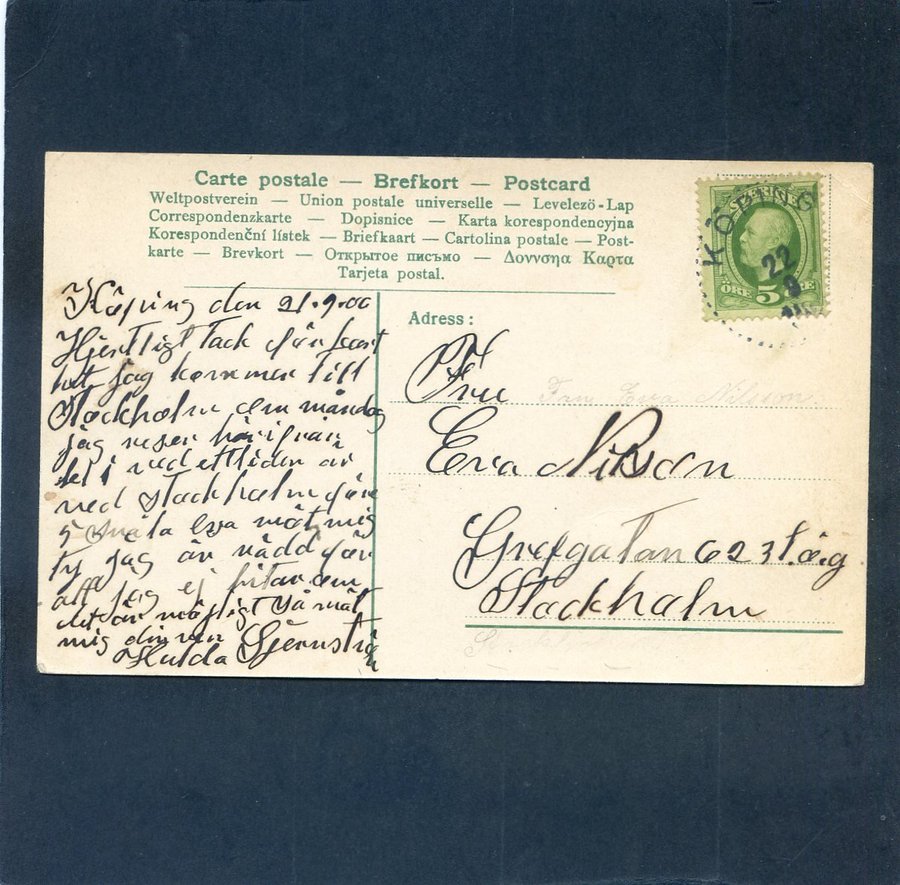 Carte postale — Brefkort — Postcard
Weltpostverein — Union postale universelle — Levelező-Lap
Correspondenzkarte — Dopisnice — Karta korespondencyjna
Korespondenční lístek — Briefkaart — Cartolina postale — Post-
karte — Brevkort — Открытое письмо — Δοννσηα Καρτα
Tarjeta postal.
SVERIGE
ÖRE 5 ÖRE
KÖPING
22
9
Köping den 21.9.00
Hjertligt Tack för kort
jag kommer till
Stockholm om måndag
jag reser härifrån
ved ettiden är
ved Stockholm för
5 möt mig
ty jag är rädd för
att jag ej hitar om
det är möjligt så möt
mig din vän
Hulda
Adress:
Fru
Fru Eva Nilsson
Eva Nilson
Grefgatan 62 3 tr. ög
Stockholm